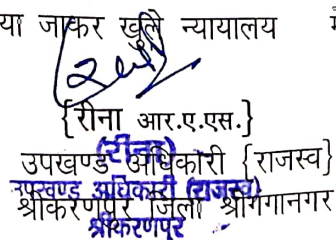 या जाकर खुले न्यायालय
{रीना आर.ए.एस.}
(रीना)
उपखण्ड अधिकारी {राजस्व}
उपखण्ड अधिकारी (राजस्व)
श्रीकरणपुर जिला श्रीगंगानगर
श्रीकरणपुर